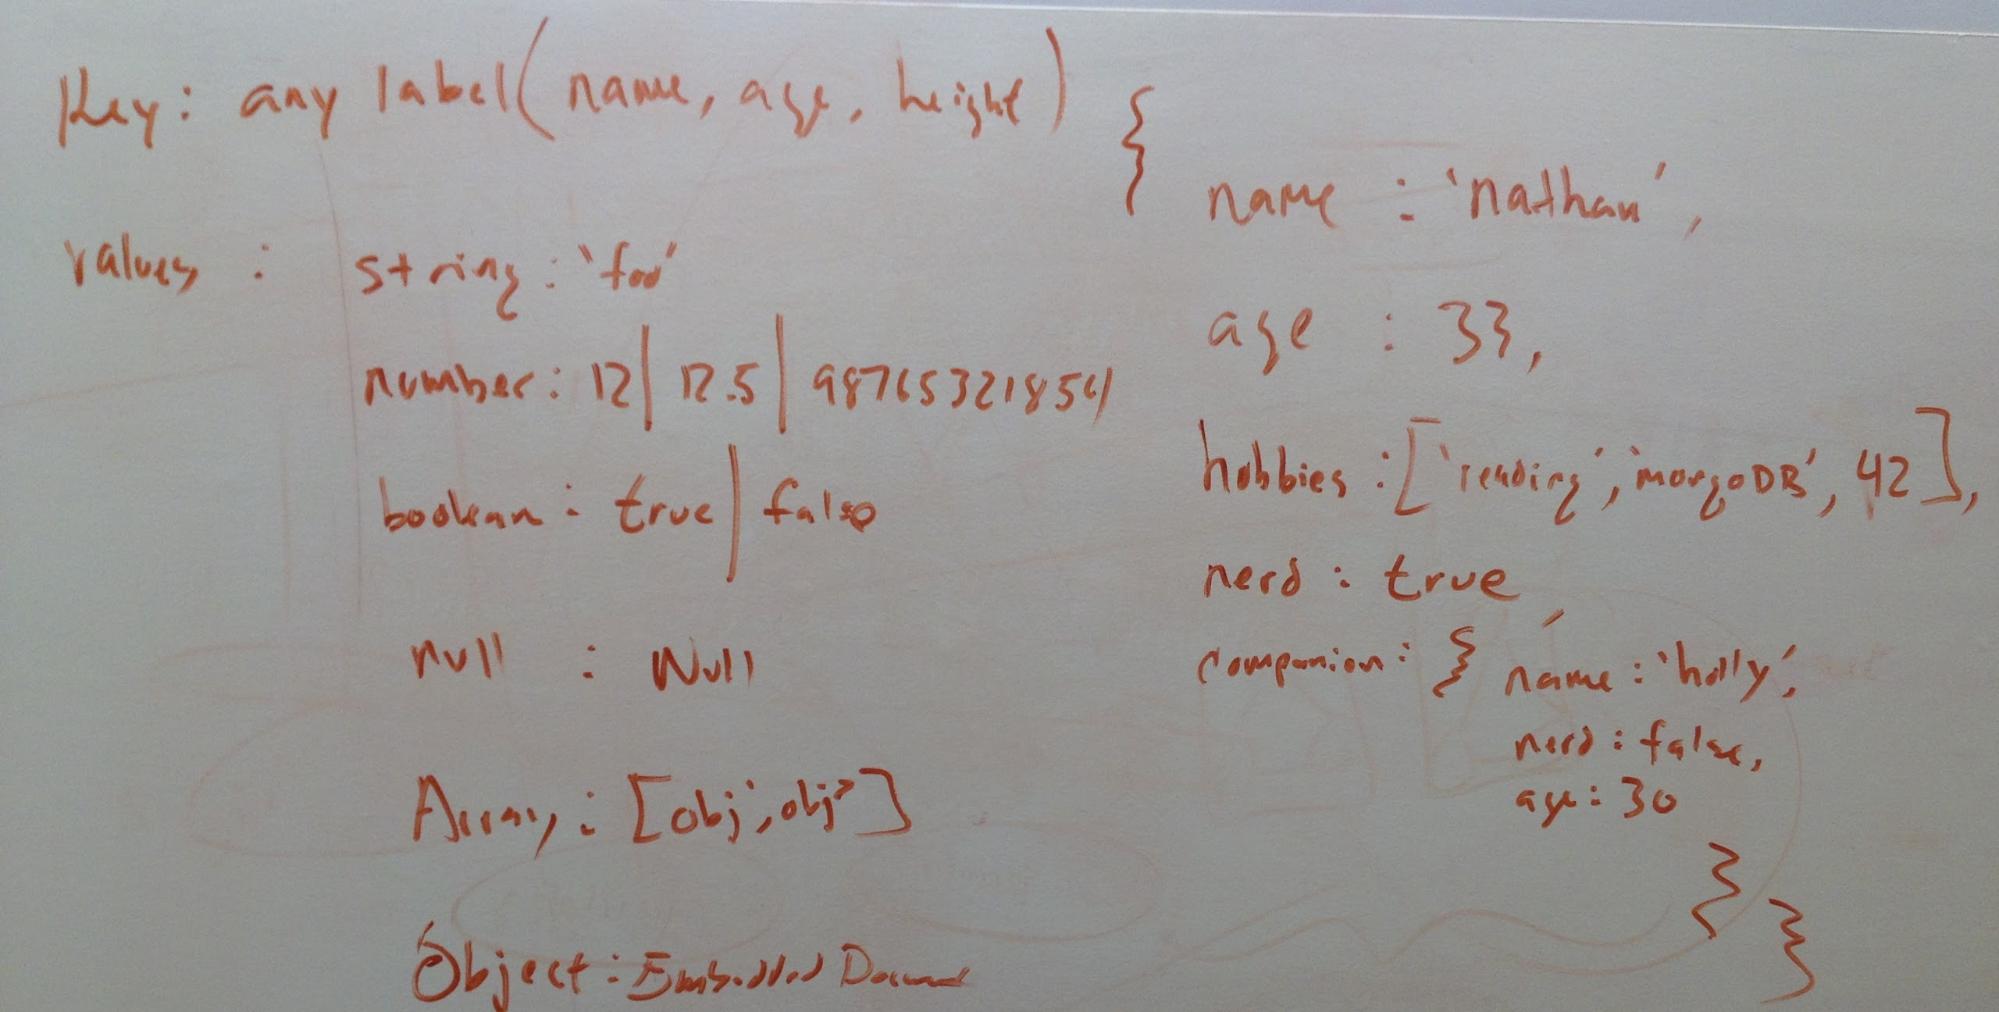 Key: any label (name, age, height)
values : string : 'foo'
number : 12 | 12.5 | 98765321854
boolean : true | false
null : Null
Array : [obj', obj²]
Object : Embedded
{
name : 'nathan',
age : 33,
hobbies : ['reading', 'mongoDB', 42],
nerd : true,
companion : { name : 'holly',
nerd : false,
age : 30
}
}